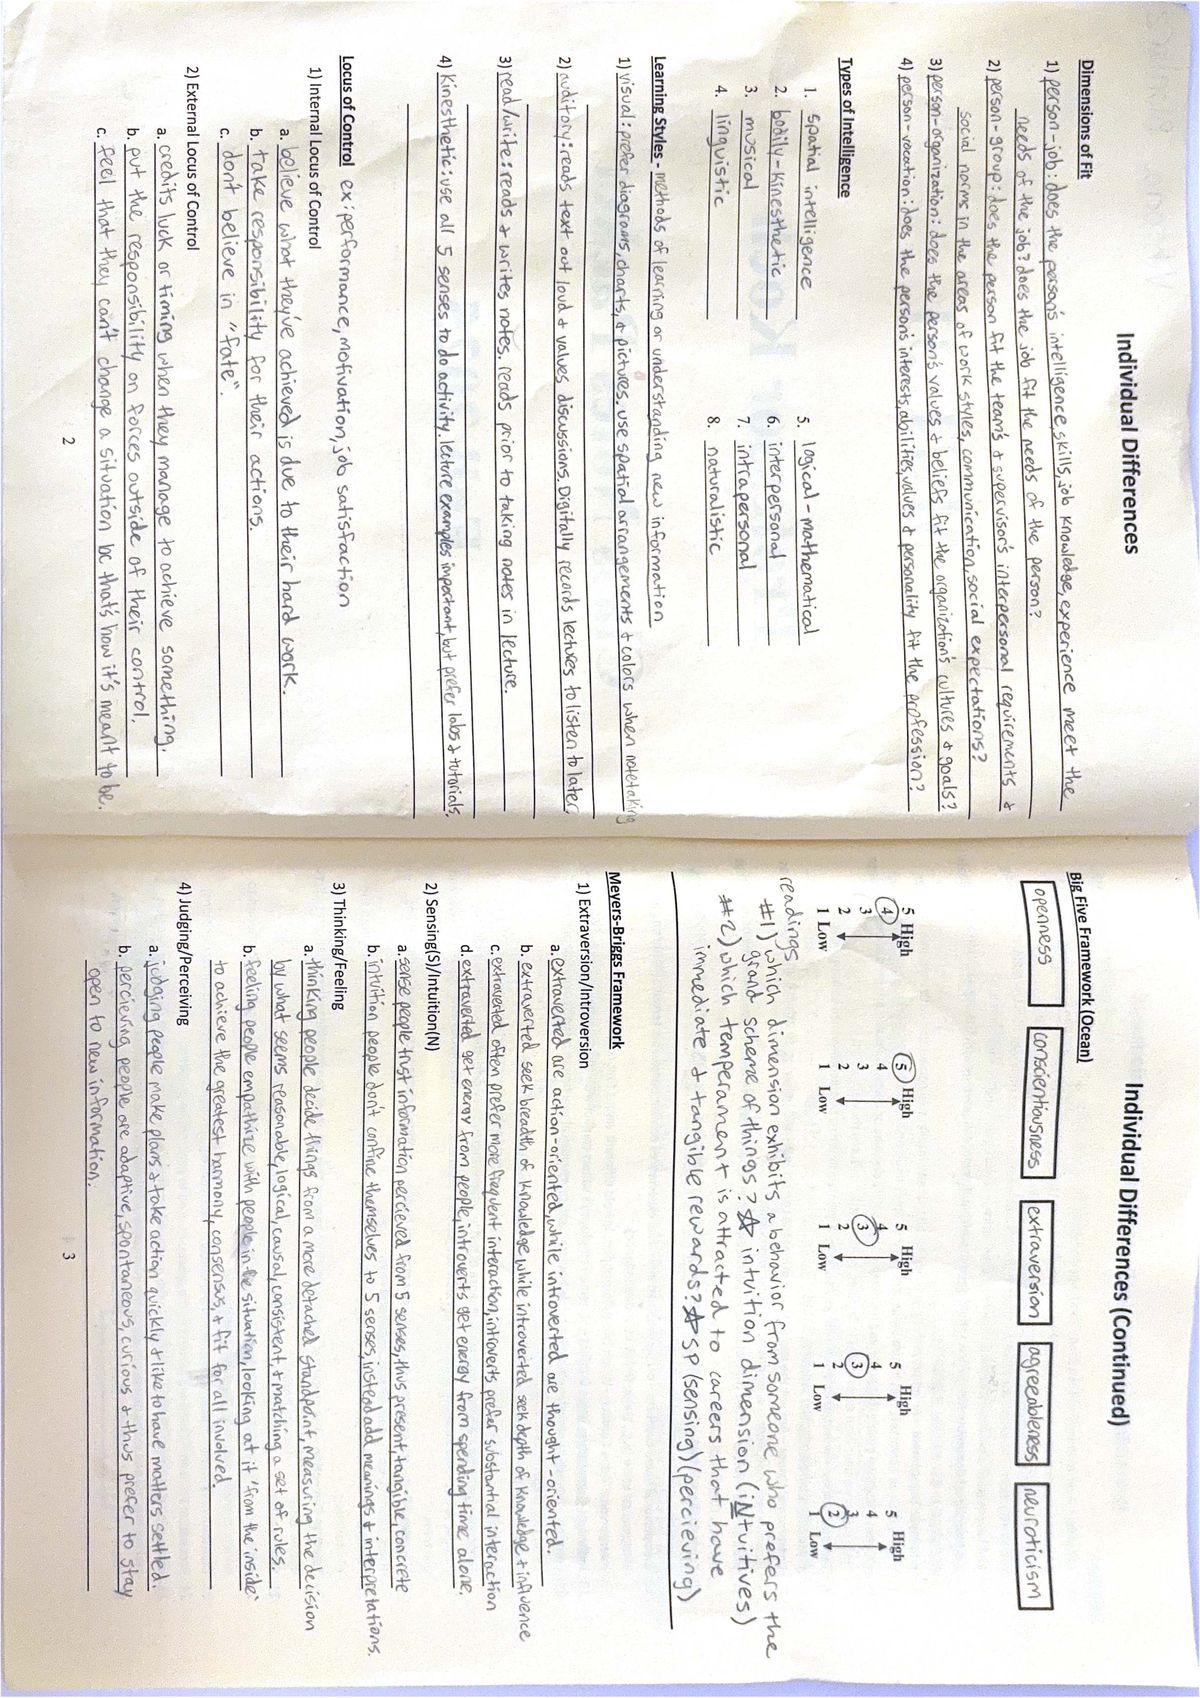 Individual Differences
Dimensions of Fit
1) person-job: does the person's intelligence, skills, job knowledge, experience meet the
needs of the job? does the job fit the needs of the person?
2) person-group: does the person fit the team's & supervisor's interpersonal requirements &
social norms in the areas of work styles, communication, social expectations?
3) person-organization: does the person's values & beliefs fit the organization's cultures & goals?
4) person-vocation: does the person's interests, abilities, values & personality fit the profession?
Types of Intelligence
1. spatial intelligence
2. bodily-kinesthetic
3. musical
4. linguistic
5. logical-mathematical
6. interpersonal
7. intrapersonal
8. naturalistic
Learning Styles - methods of learning or understanding new information
1) visual: prefer diagrams, charts, & pictures. use spatial arrangements & colors when notetaking
2) auditory: reads text out loud & values discussions. Digitally records lectures to listen to later
3) read/write: reads & writes notes. reads prior to taking notes in lecture.
4) Kinesthetic: use all 5 senses to do activity. lecture examples important, but prefer labs & tutorials.
Locus of Control ex: performance, motivation, job satisfaction
1) Internal Locus of Control
a. believe what they've achieved is due to their hard work.
b. take responsibility for their actions.
c. don't believe in "fate".
2) External Locus of Control
a. credits luck or timing when they manage to achieve something.
b. put the responsibility on forces outside of their control.
c. feel that they can't change a situation bc that's how it's meant to be.
2
Individual Differences (Continued)
Big Five Framework (Ocean)
openness
conscientiousness
extraversion
agreeableness
neuroticism
5 High
4
3
2
1 Low
5 High
4
3
2
1 Low
5 High
4
3
2
1 Low
5 High
4
3
2
1 Low
5 High
4
3
2
1 Low
readings
#1) which dimension exhibits a behavior from someone who prefers the
grand scheme of things? ☆ intuition dimension (iNtuitives)
#2) which temperament is attracted to careers that have
immediate & tangible rewards? ☆ SP (sensing) (percieving)
Meyers-Briggs Framework
1) Extraversion/Introversion
a. extraverted are action-oriented, while introverted are thought-oriented.
b. extraverted seek breadth of knowledge, while introverted seek depth of knowledge & influence
c. extraverted often prefer more frequent interaction, introverts prefer substantial interaction
d. extraverted get energy from people, introverts get energy from spending time alone.
2) Sensing(S)/Intuition(N)
a. sense people trust information percieved from 5 senses, thus present, tangible, concrete
b. intuition people don't confine themselves to 5 senses, instead add meanings & interpretations.
3) Thinking/Feeling
a. thinking people decide things from a more detached standpoint, measuring the decision
by what seems reasonable, logical, causal, consistent, & matching a set of rules.
b. feeling people empathize with people in the situation, looking at it 'from the inside'
to achieve the greatest harmony, consensus, & fit for all involved.
4) Judging/Perceiving
a. judging people make plans & take action quickly & like to have matters settled.
b. percieving people are adaptive, spontaneous, curious & thus prefer to stay
open to new information.
3